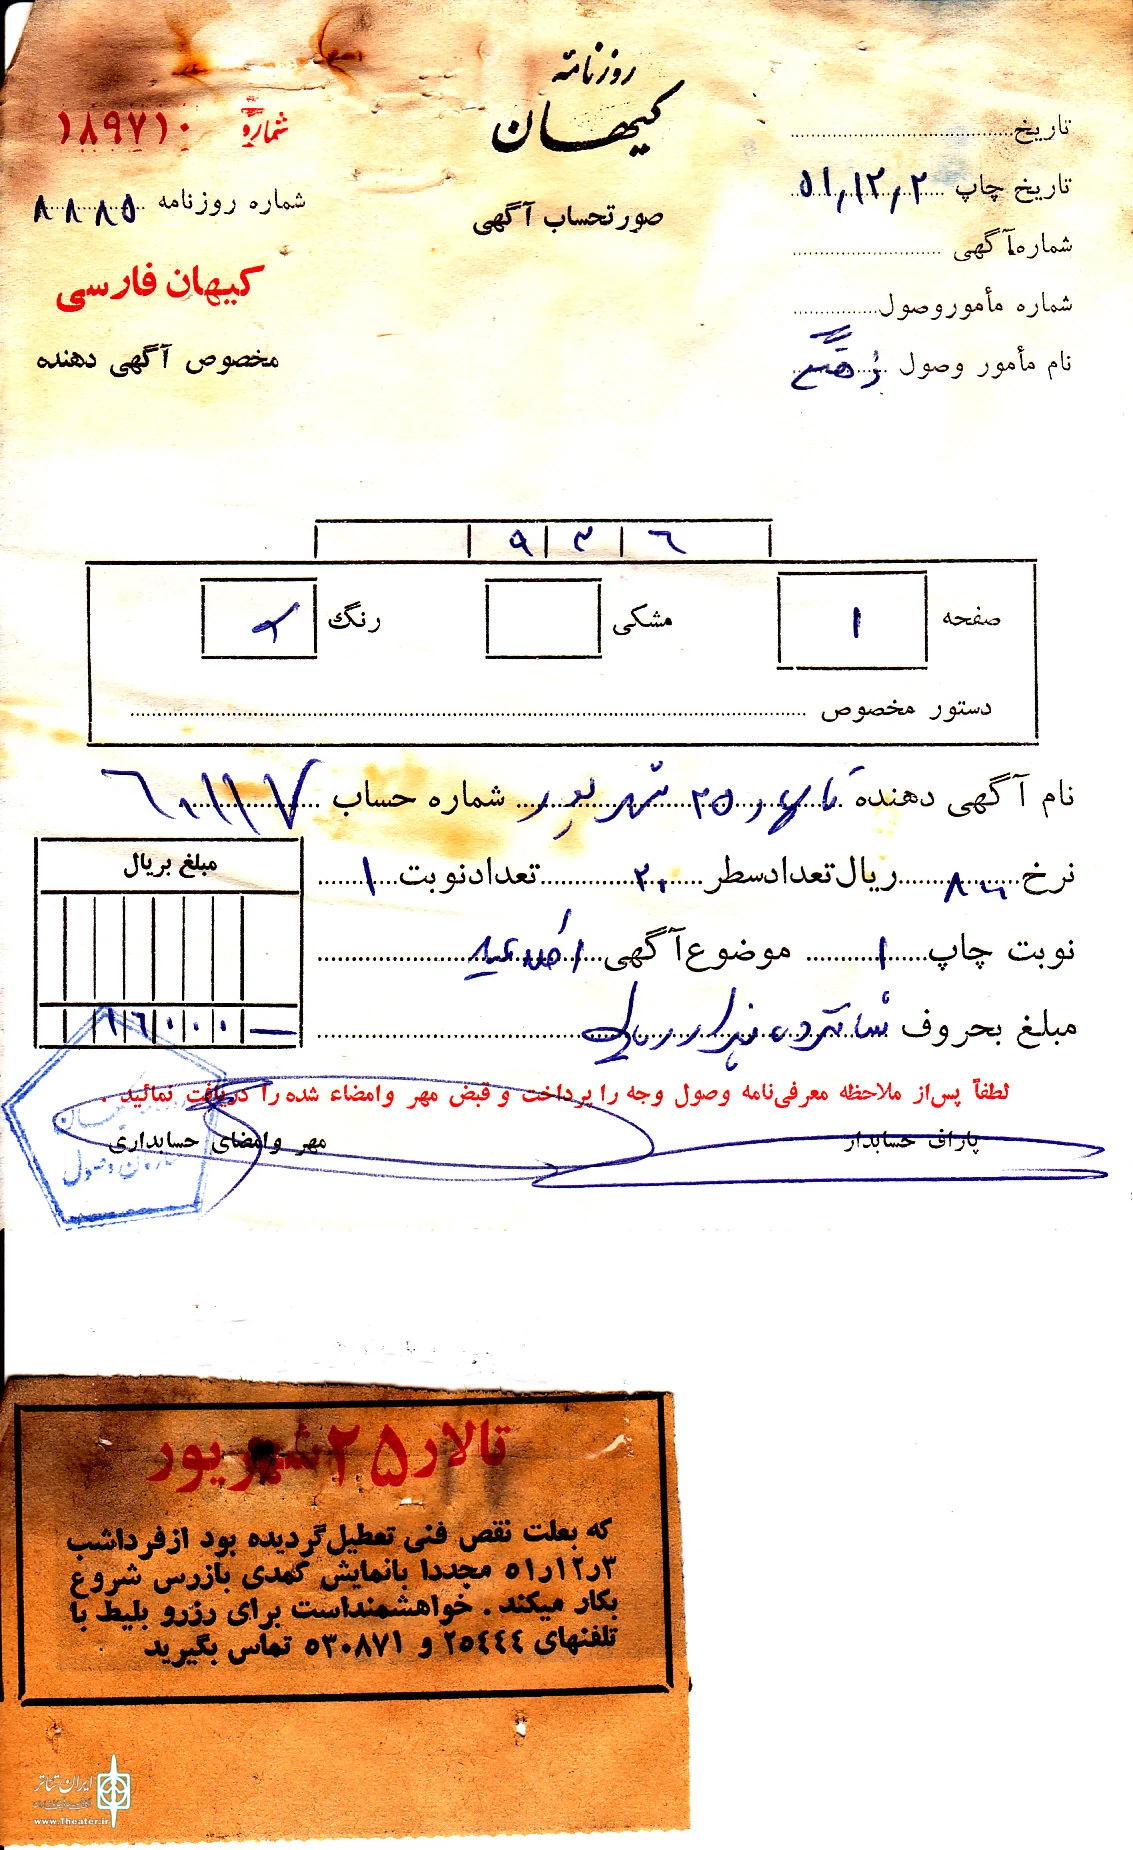 روزنامه
کیهان
صورتحساب آگهی
شماره ۱۸۹۷۱۰
شماره روزنامه ۸۸۸۵
کیهان فارسی
مخصوص آگهی دهنده
تاریخ
تاریخ چاپ ۵۱,۱۲,۲
شماره آگهی
شماره مأمور وصول
نام مأمور وصول
۹ ۳ ۶
صفحه ۱ مشکی رنگ
دستور مخصوص
نام آگهی دهنده تالار ۲۵ شهریور شماره حساب
نرخ ۸۰۰ ریال تعداد سطر ۲۰ تعداد نوبت ۱
نوبت چاپ ۱ موضوع آگهی
مبلغ بریال
۱۶۰۰۰
مبلغ بحروف شانزده هزار ریال
لطفاً پس از ملاحظه معرفی‌نامه وصول وجه را پرداخت و قبض مهر وامضاء شده را دریافت نمائید .
پاراف حسابدار مهر وامضای حسابداری
کیهان
سازمان وصول
تالار ۲۵ شهریور
که بعلت نقص فنی تعطیل گردیده بود از فرداشب
۳ر۱۲ر۵۱ مجددا بانمایش کمدی بازرس شروع
بکار میکند . خواهشمنداست برای رزرو بلیط با
تلفنهای ۲۵۴۴۴ و ۵۳۰۸۷۱ تماس بگیرید
ایران تئاتر
www.Theater.ir